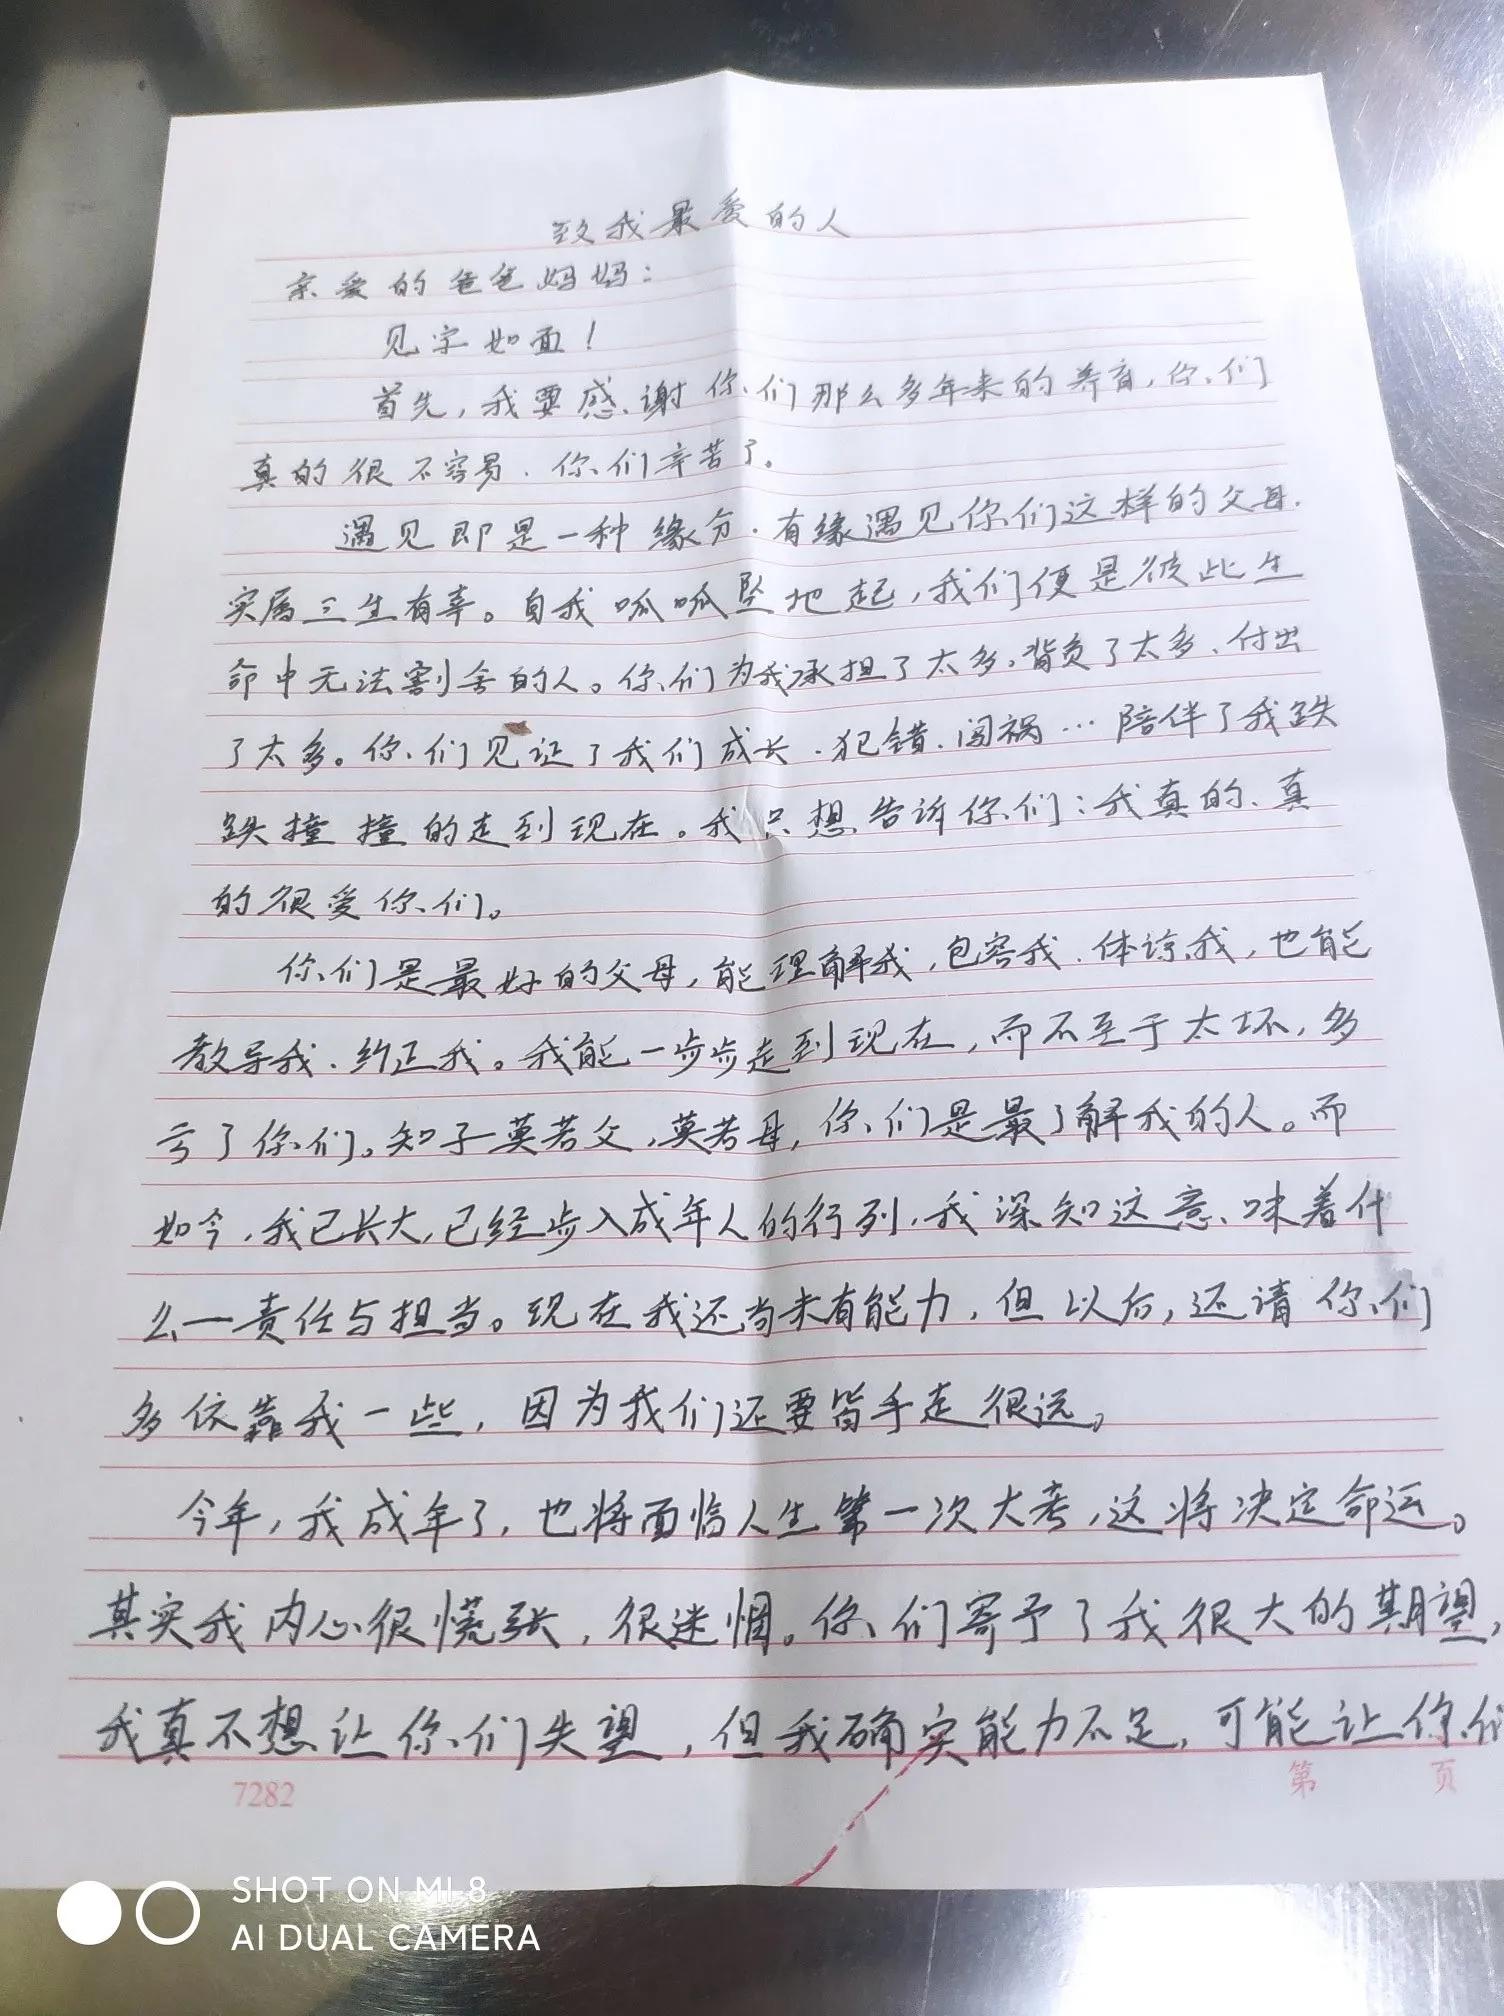 致我最爱的人
亲爱的爸爸妈妈：
见字如面！
首先，我要感谢你们那么多年来的养育，你们
真的很不容易、你们辛苦了。
遇见即是一种缘分、有缘遇见你们这样的父母、
实属三生有幸。自我呱呱坠地起，我们便是彼此生
命中无法割舍的人。你们为我承担了太多、背负了太多、付出
了太多。你们见证了我们成长、犯错、闯祸…陪伴了我跌
跌撞撞的走到现在。我只想告诉你们：我真的、真
的很爱你们。
你们是最好的父母，能理解我，包容我、体谅我，也能
教导我、约正我。我能一步步走到现在，而不至于太坏，多
亏了你们。知子莫若父，莫若母，你们是最了解我的人。而
如今，我已长大，已经步入成年人的行列，我深知这意味着什
么—责任与担当。现在我还尚未有能力，但以后，还请你们
多依靠我一些，因为我们还要皆手走很远。
今年，我成年了，也将面临人生第一次大考，这将决定命运。
其实我内心很慌张，很迷惘。你们寄予了我很大的期望，
我真不想让你们失望，但我确实能力不足，可能让你们
7282
第 页
SHOT ON MI 8
AI DUAL CAMERA